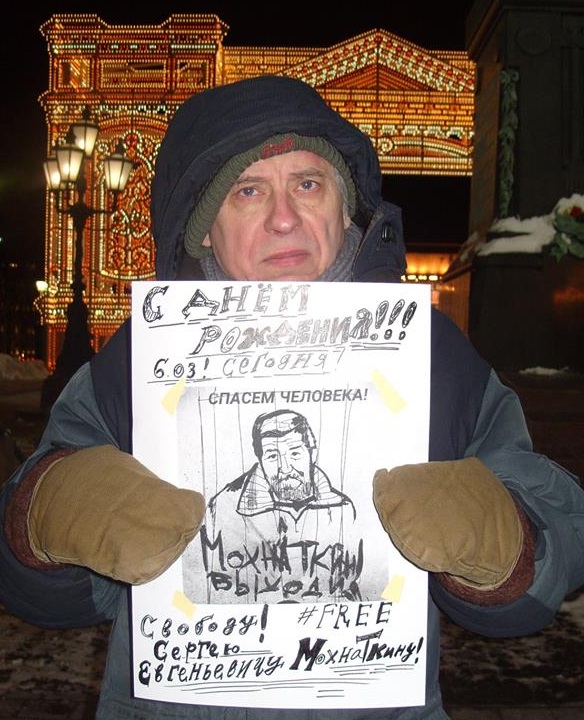 С ДНЁМ
РОЖДЕНИЯ!!!
6.03! СЕГОДНЯ!
СПАСЕМ ЧЕЛОВЕКА!
МОХНАТКИН
ВЫХОДИ
Свободу! #FREE
Сергею
Евгеньевичу Мохнаткину!